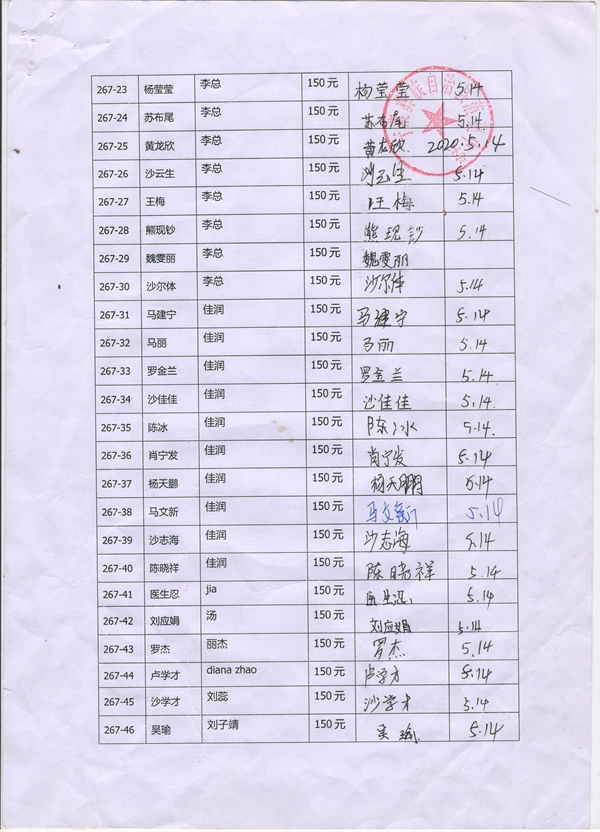 267-23 杨莹莹 李总 150元 杨莹莹 5.14
267-24 苏布尾 李总 150元 苏布尾 5.14
267-25 黄龙欣 李总 150元 黄龙欣 2020.5.14
267-26 沙云生 李总 150元 沙云生 5.14
267-27 王梅 李总 150元 王梅 5.14
267-28 熊现钞 李总 150元 熊现钞 5.14
267-29 魏雯丽 李总 150元 魏雯丽
267-30 沙尔体 李总 150元 沙尔体 5.14
267-31 马建宁 佳润 150元 马建宁 5.14
267-32 马丽 佳润 150元 马丽 5.14
267-33 罗金兰 佳润 150元 罗金兰 5.14
267-34 沙佳佳 佳润 150元 沙佳佳 5.14
267-35 陈冰 佳润 150元 陈冰 5.14
267-36 肖宁发 佳润 150元 肖宁发 5.14
267-37 杨天鹏 佳润 150元 杨天鹏 5.14
267-38 马文新 佳润 150元 马文新 5.14
267-39 沙志海 佳润 150元 沙志海 5.14
267-40 陈晓祥 佳润 150元 陈晓祥 5.14
267-41 医生忍 jia 150元 医生忍 5.14
267-42 刘应娟 汤 150元 刘应娟 5.14
267-43 罗杰 丽杰 150元 罗杰 5.14
267-44 卢学才 diana zhao 150元 卢学才 5.14
267-45 沙学才 刘蕊 150元 沙学才 5.14
267-46 吴瑜 刘子靖 150元 吴瑜 5.14